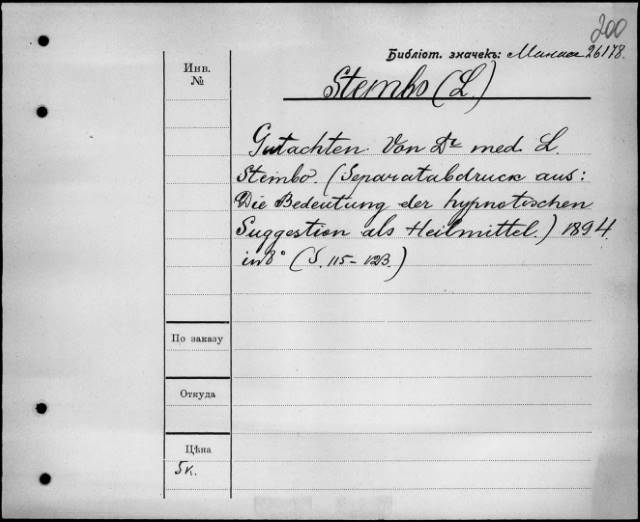 200
Библіот. значекъ: Минасъ 26178.
Инв.
№
Stembo (L)
Gutachten Von Dr med. L.
Stembo. (Separatabdruck aus:
Die Bedeutung der hypnotischen
Suggestion als Heilmittel.) 1894.
in 8° (S. 115-123.)
По заказу
Откуда
Цѣна
5к.